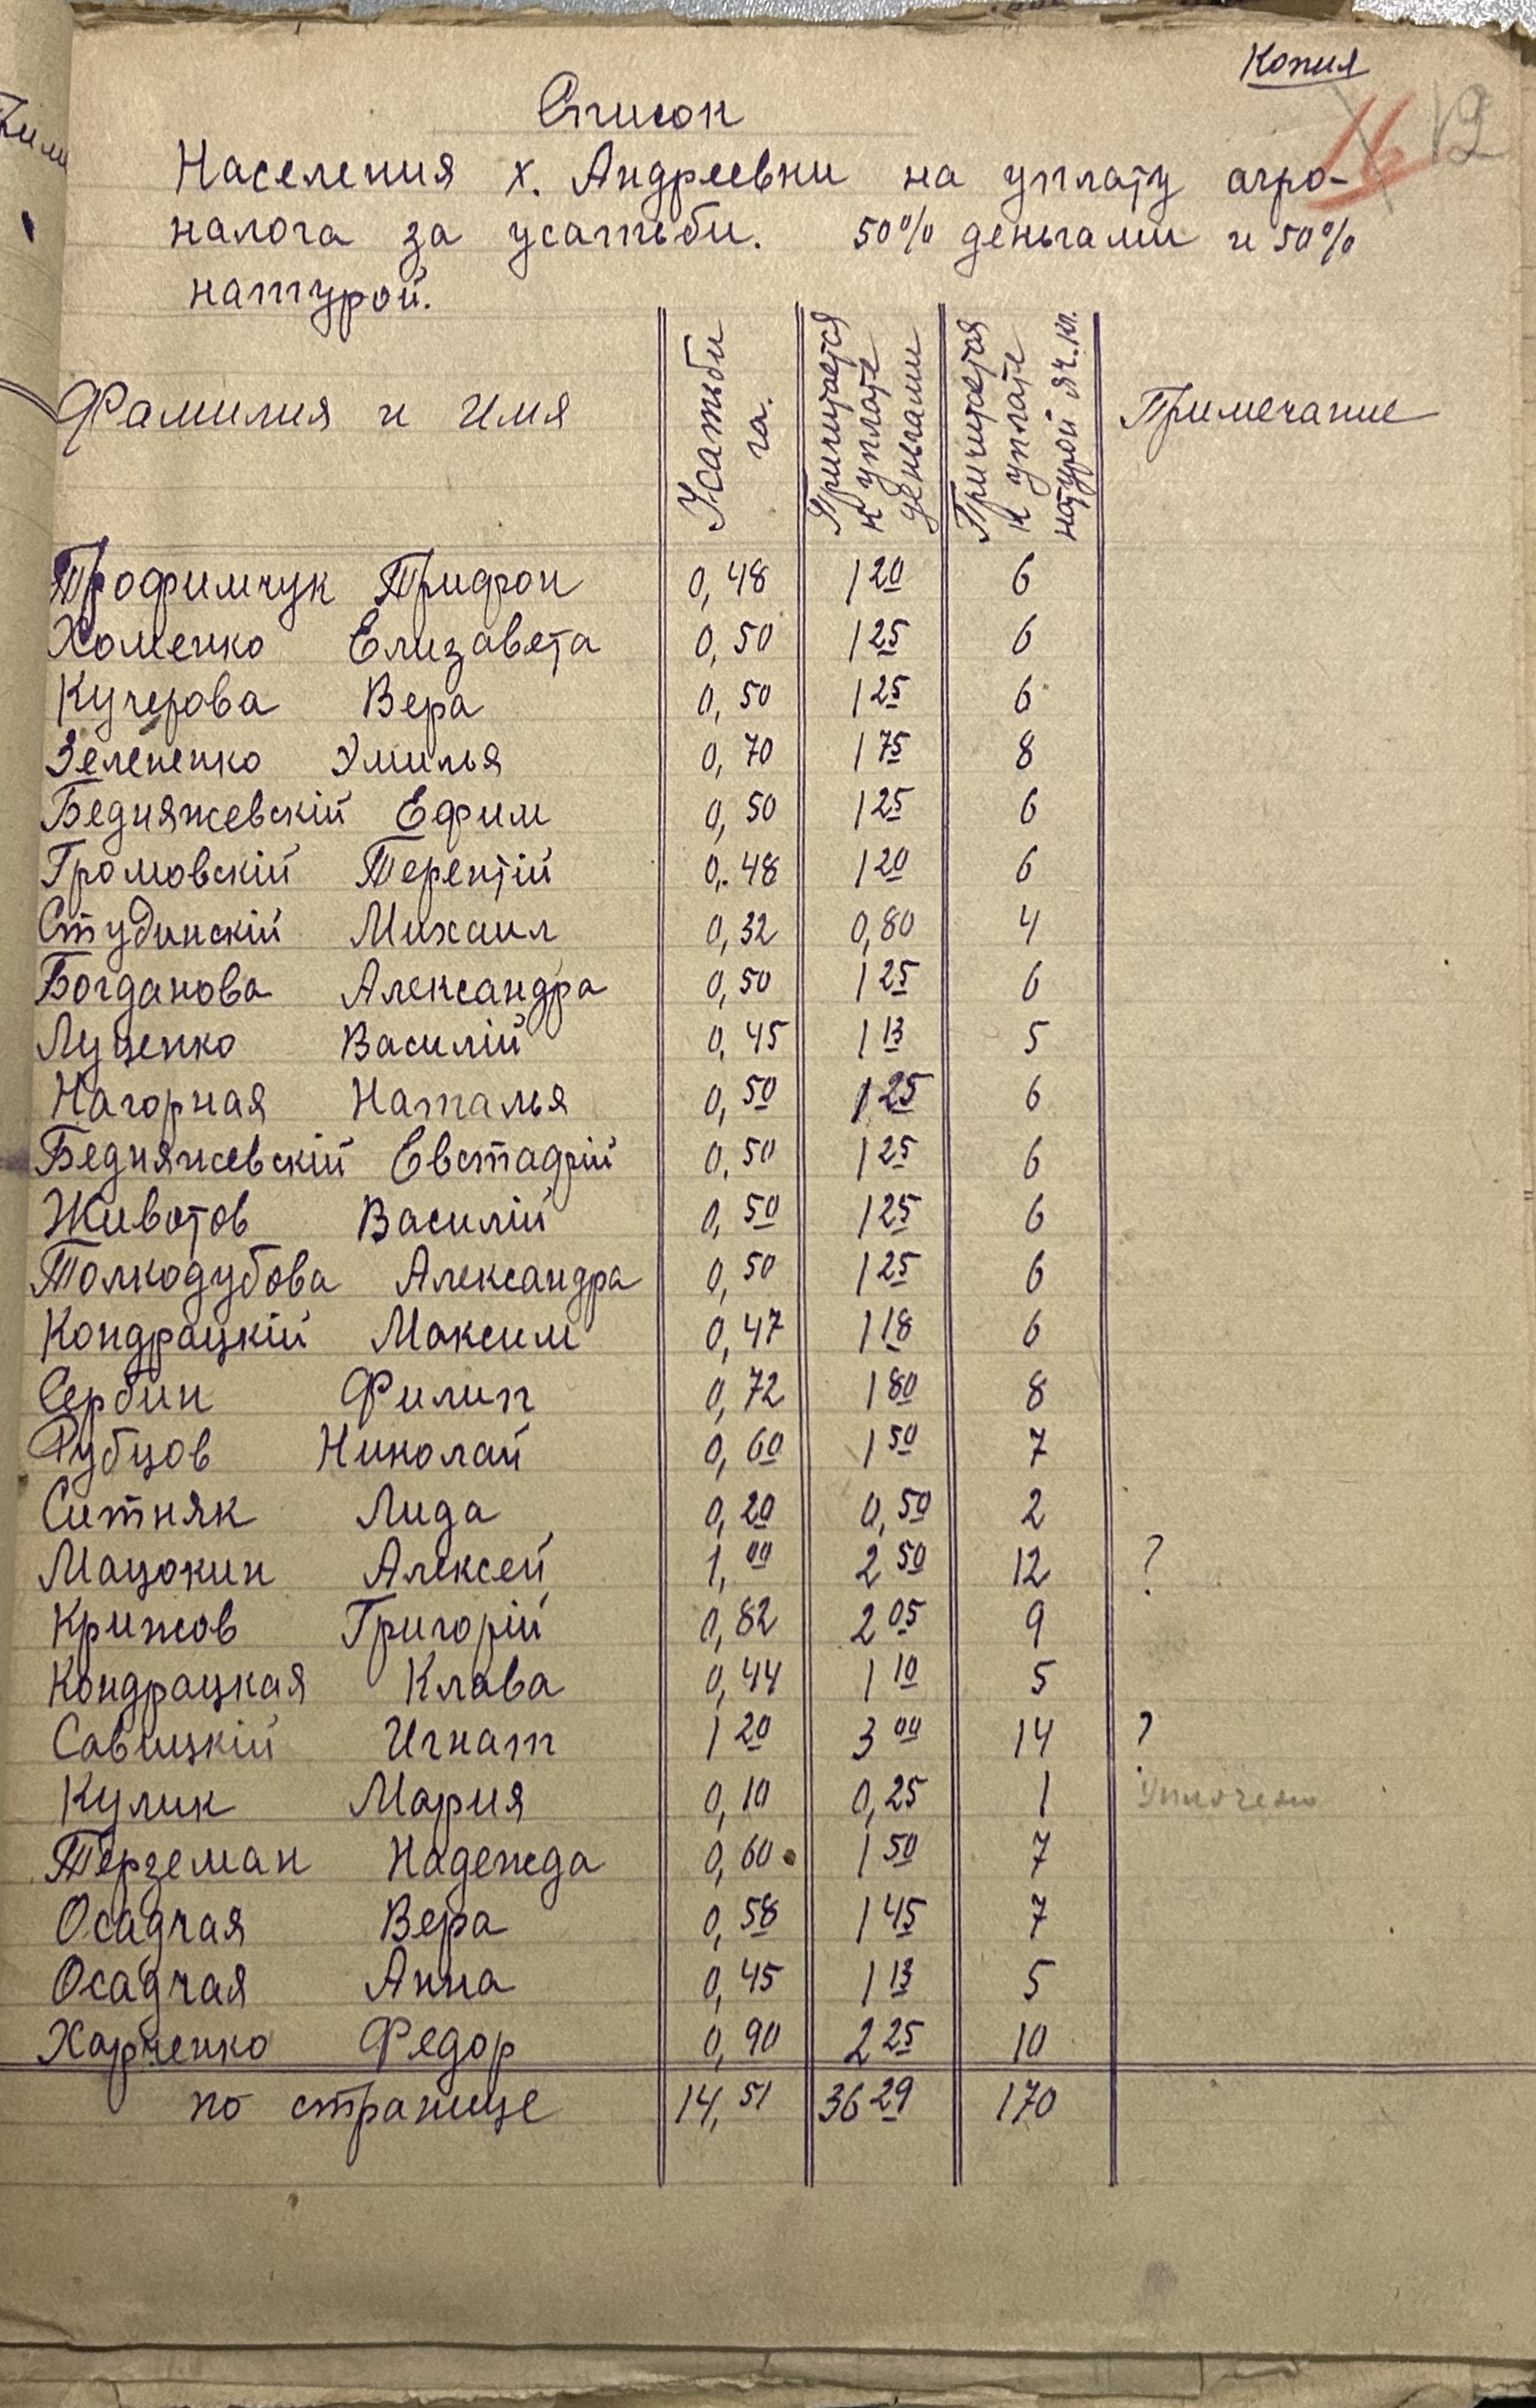 Копия
16 12
Список
Населения х. Андреевки на уплату агро-
налога за усатьби. 50% деньгами и 50%
натурой.
Фамилия и Имя | Усатьби га. | Причитается к уплате деньгами | Причитается к уплате натурой яч. кл. | Примечание
Трофимчук Трифон 0,48 1 20 6
Хоменко Елизавета 0,50 1 25 6
Кучерова Вера 0,50 1 25 6
Зелененко Эмилья 0,70 1 75 8
Бедняжевскій Ефим 0,50 1 25 6
Громовскій Терентій 0,48 1 20 6
Студинскій Михаил 0,32 0,80 4
Богданова Александра 0,50 1 25 6
Луценко Василій 0,45 1 13 5
Нагорная Наталья 0,50 1 25 6
Бедняжевскій Евстафій 0,50 1 25 6
Животов Василій 0,50 1 25 6
Толкодубова Александра 0,50 1 25 6
Кондрацкій Максим 0,47 1 18 6
Сербин Филип 0,72 1 80 8
Рубцов Николай 0,60 1 50 7
Ситняк Лида 0,20 0,50 2
Мацокин Алексей 1,00 2 50 12 ?
Крижов Григорій 0,82 2 05 9
Кондрацкая Клава 0,44 1 10 5
Савицкій Игнат 1 20 3 00 14 ?
Кулик Мария 0,10 0,25 1 Уплочено
Терземан Надежда 0,60 1 50 7
Осадчая Вера 0,58 1 45 7
Осадчая Анна 0,45 1 13 5
Харченко Федор 0,90 2 25 10
по странице 14,51 36 29 170